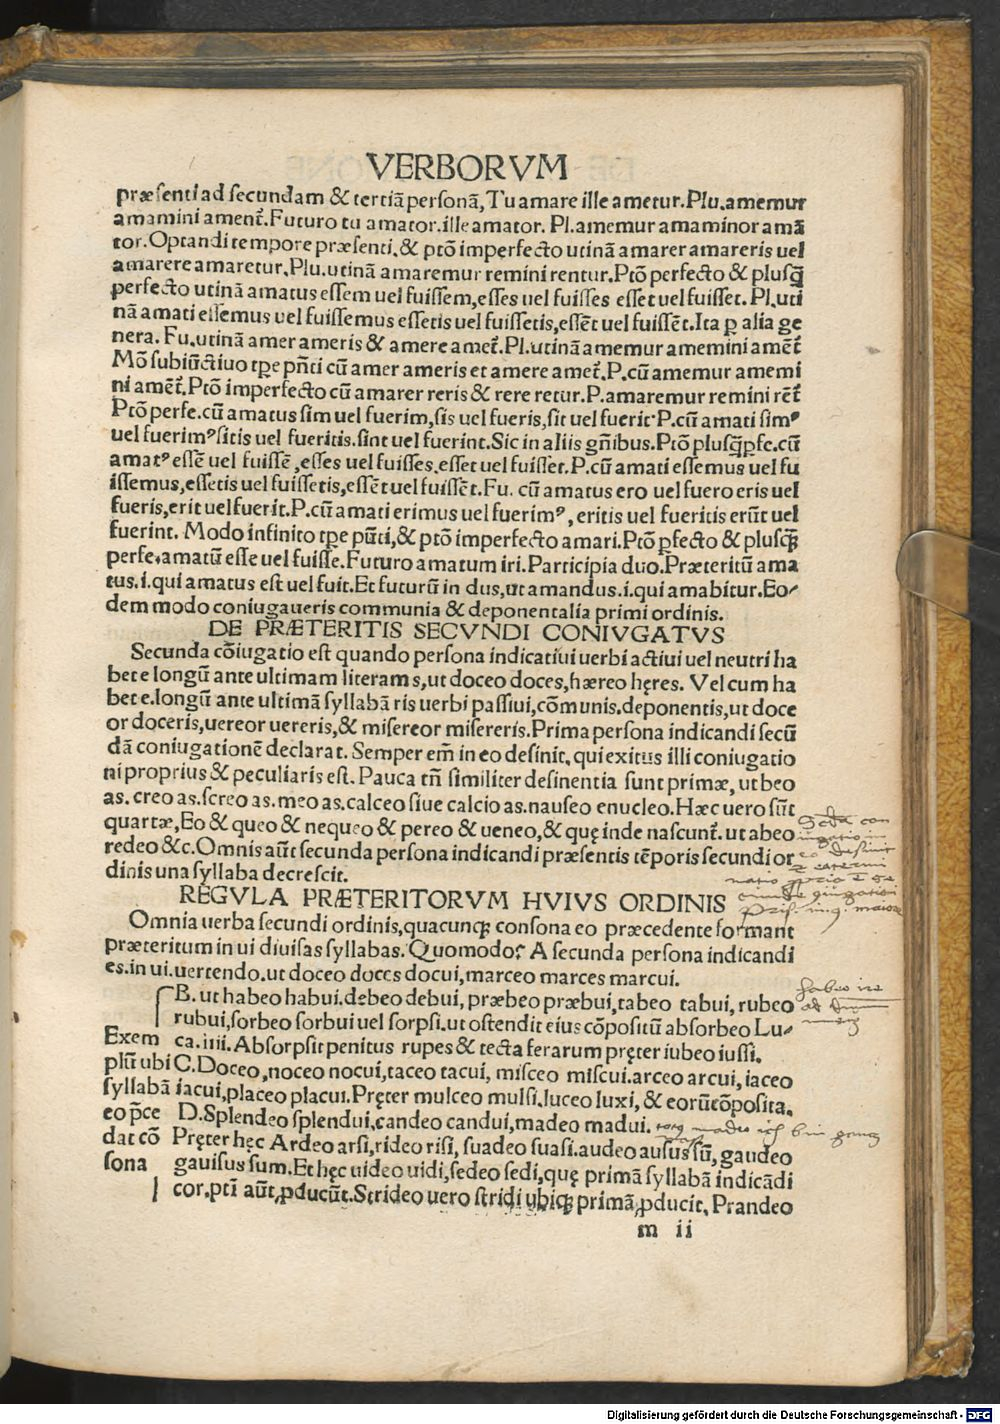 VERBORVM
præsenti ad secundam & tertiā personā, Tu amare ille ametur. Plu. amemur
amamini ament᷑. Futuro tu amator. ille amator. Pl. amemur amaminor amā
tor. Optandi tempore præsenti. & ptō imperfecto utinā amarer amareris uel
amarere amaretur. Plu. utinā amaremur remini rentur. Ptō perfecto & plusq̄
perfecto utinā amatus essem uel fuissem, esses uel fuisses esset uel fuisset. Pl. uti
nā amati essemus uel fuissemus essetis uel fuissetis, essēt uel fuissēt. Ita ꝑ alia ge
nera. Fu. utinā amer ameris & amere amet᷑. Pl. utinā amemur amemini amēt᷑
Mō subiūctiuo tꝑe pn̄ti cū amer ameris et amere amet᷑. P. cū amemur amemi
ni amēt᷑. Ptō imperfecto cū amarer reris & rere retur. P. amaremur remini rēt᷑
Ptō perfe. cū amatus sim uel fuerim, sis uel fueris, sit uel fuerit. P. cū amati simꝰ
uel fuerimꝰ sitis uel fueritis. sint uel fuerint. Sic in aliis gn̄ibus. Ptō plusq̄ꝑfe. cū
amatꝰ essē uel fuissē, esses uel fuisses. esset uel fuisset. P. cū amati essemus uel fu
issemus, essetis uel fuissetis, essēt uel fuissēt. Fu. cū amatus ero uel fuero eris uel
fueris, erit uel fuerit. P. cū amati erimus uel fuerimꝰ, eritis uel fueritis erūt uel
fuerint. Modo infinito tꝑe pn̄ti, & ptō imperfecto amari. Ptō ꝑfecto & plusq̄
perfe. amatū esse uel fuisse. Futuro amatum iri. Participia duo. Præteritū ama
tus. i. qui amatus est uel fuit. Et futurū in dus, ut amandus. i. qui amabitur. Eo-
dem modo coniugaueris communia & deponentalia primi ordinis.
DE PRÆTERITIS SECVNDI CONIVGATVS
Secunda cōiugatio est quando persona indicatiui uerbi actiui uel neutri ha
bet e longū ante ultimam literam s, ut doceo doces, hæreo hęres. Vel cum ha
bet e. longū ante ultimā syllabā ris uerbi passiui, cōmunis. deponentis, ut doce
or doceris, uereor uereris, & misereor misereris. Prima persona indicandi secū
dā coniugationē declarat. Semper em̄ in eo desinit, qui exitus illi coniugatio
ni proprius & peculiaris est. Pauca tn̄ similiter desinentia sunt primæ, ut beo
as. creo as. screo as. meo as. calceo siue calcio as. nauseo enucleo. Hæc uero sūt
quartæ, Eo & queo & nequeo & pereo & ueneo, & quę inde nascunt᷑. ut abeo
redeo &c. Omnis aūt secunda persona indicandi præsentis tēporis secundi or
dinis una syllaba decrescit.
REGVLA PRÆTERITORVM HVIVS ORDINIS
Omnia uerba secundi ordinis, quacunqꝫ consona eo præcedente formant
præteritum in ui diuisas syllabas. Quomodo? A secunda persona indicandi
es. in ui. uertendo. ut doceo doces docui, marceo marces marcui.
B. ut habeo habui. debeo debui, præbeo præbui, tabeo tabui, rubeo
rubui, sorbeo sorbui uel sorpsi. ut ostendit eius cōpositū absorbeo Lu-
Exem ca. iiii. Absorpsit penitus rupes & tecta ferarum pręter iubeo iussi.
plū ubi C. Doceo, noceo nocui, taceo tacui, misceo miscui. arceo arcui, iaceo
syllabā iacui, placeo placui. Pręter mulceo mulsi. luceo luxi, & eorū cōposita.
eo p̄ce D. Splendeo splendui, candeo candui, madeo madui.
dat cō Pręter hęc Ardeo arsi, rideo risi, suadeo suasi. audeo ausus sū, gaudeo
sona gauisus sum. Et hęc uideo uidi, sedeo sedi, quę primā syllabā indicādi
cor. pti aūt, ꝓducūt. Strideo uero stridi ubiqꝫ primā ꝓducit. Prandeo
m ii
habeo
Digitalisierung gefördert durch die Deutsche Forschungsgemeinschaft - DFG